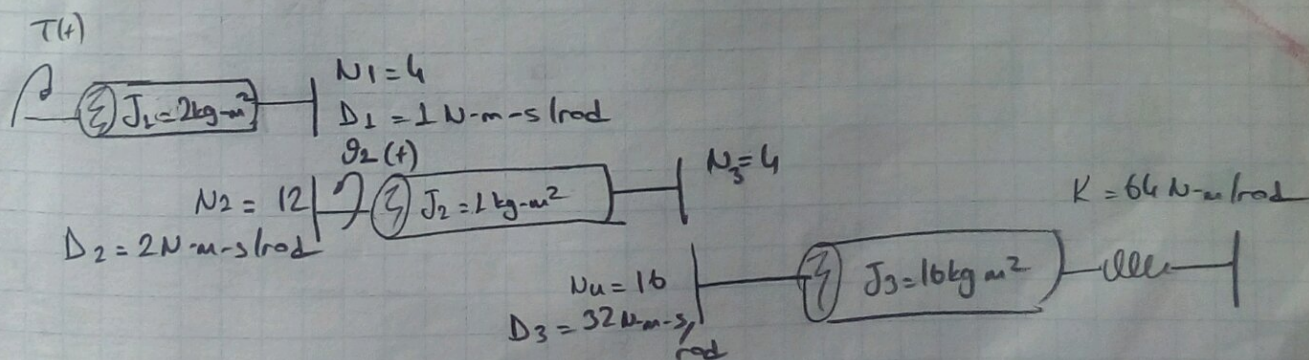 T(t)
J1=2kg-m²
N1=4
D1=1 N-m-s/rad
θ2(t)
N2=12
D2=2N-m-s/rad
J2=1kg-m²
N3=4
K=64 N-m/rad
N4=16
D3=32N-m-s/rad
J3=16kg m²